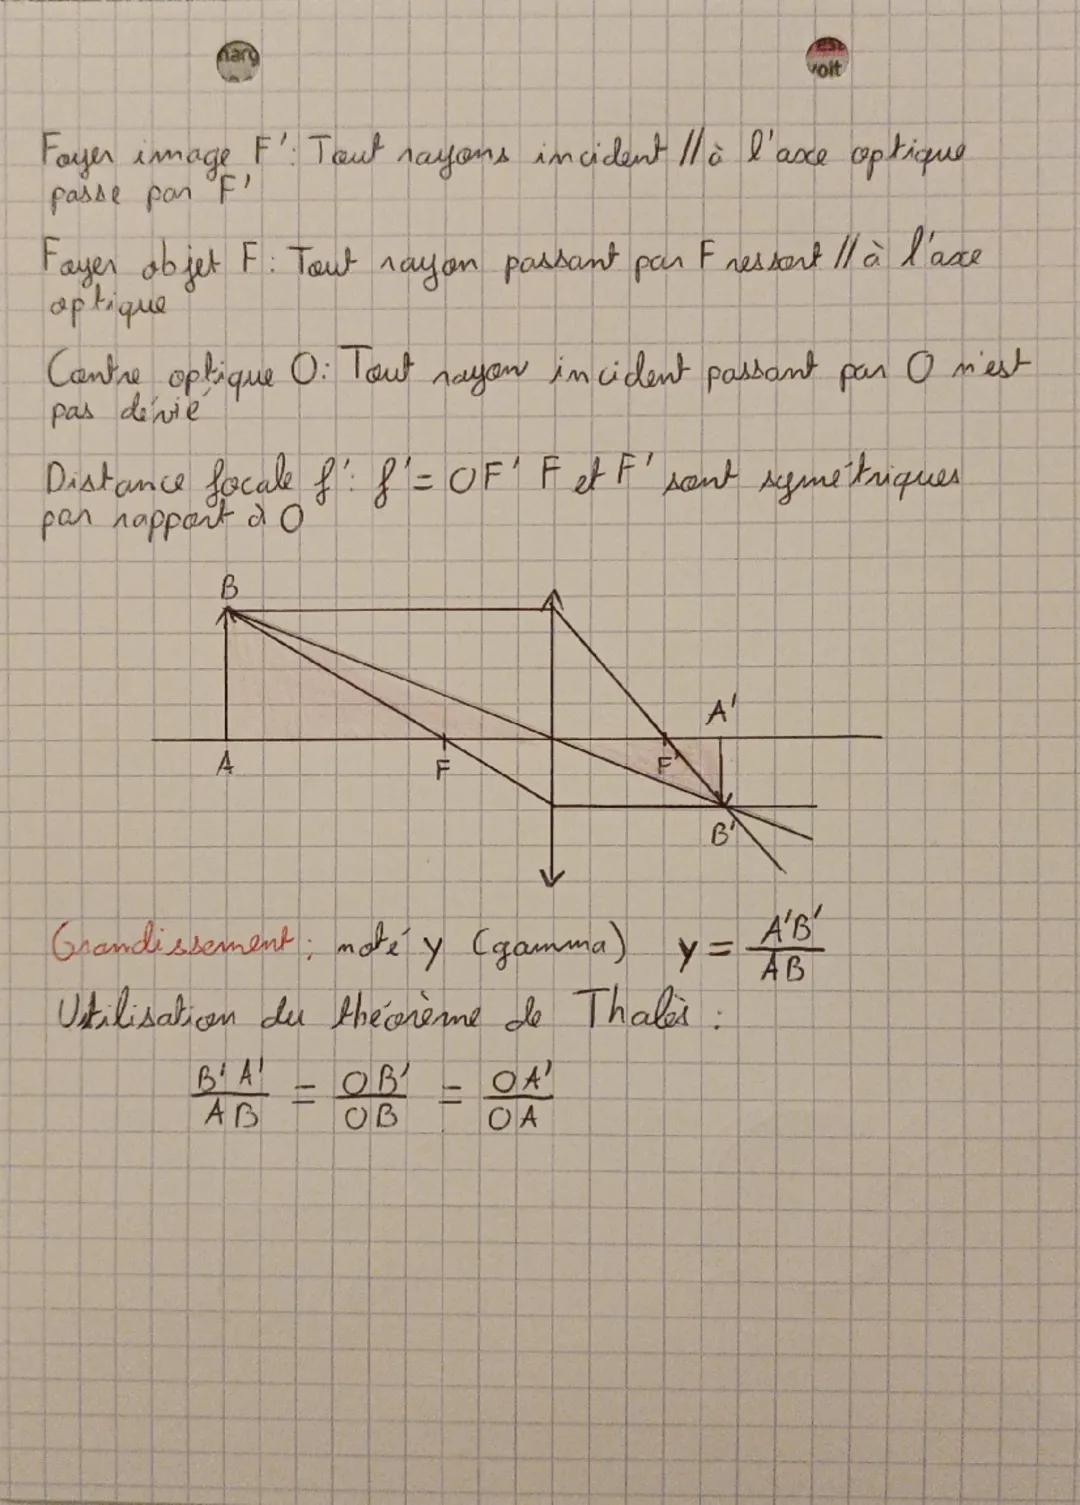 marg
est
voit
Foyer image F' : Tout rayons incident // à l'axe optique
passe par F'
Foyer objet F : Tout rayon passant par F ressort // à l'axe
optique
Centre optique O : Tout rayon incident passant par O n'est
pas dévié
Distance focale f' : f' = OF' F et F' sont symétriques
par rapport à O
B
A'
A
F
F'
B'
Grandissement : noté γ (gamma) γ = A'B' / AB
Utilisation du théorème de Thalès :
B'A' / AB = OB' / OB = OA' / OA